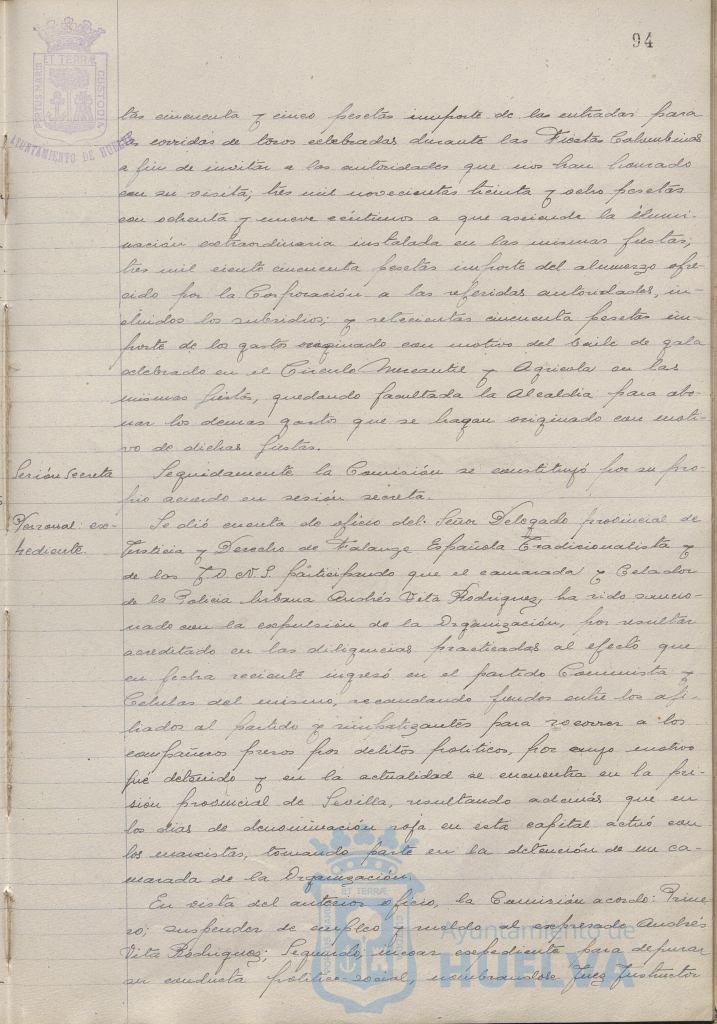 94
PORTUS MARIS ET TERRÆ CUSTODIA
AYUNTAMIENTO DE HUELVA
tas cincuenta y cinco pesetas importe de las entradas para
las corridas de toros celebradas durante las Fiestas Colombinas
a fin de invitar a las autoridades que nos han honrado
con su visita; tres mil novecientas treinta y ocho pesetas
con ochenta y nueve céntimos a que asciende la ilumi-
nación extraordinaria instalada en las mismas fiestas;
tres mil ciento cincuenta pesetas importe del almuerzo ofre-
cido por la Corporación a las referidas autoridades, in-
cluidos los subsidios; y setecientas cincuenta pesetas im-
porte de los gastos originado con motivo del baile de gala
celebrado en el Círculo Mercantil y Agrícola en las
mismas fiestas, quedando facultada la Alcaldía para abo-
nar los demas gastos que se hayan originado con moti-
vo de dichas fiestas.
Sesión Secreta
Seguidamente la Comisión se constituyó por su pro-
pio acuerdo en sesión secreta.
Personal: ex-
pediente.
Se dió cuenta de oficio del Señor Delegado provincial de
Justicia y Derecho de Falange Española Tradicionalista y
de las J.O.N.S. participando que el camarada y Celador
de la Policia Urbana Andrés Vita Rodriguez, ha sido sancio-
nado con la expulsión de la Organización, por resultar
acreditado en las diligencias practicadas al efecto que
en fecha reciente ingresó en el partido Comunista y
Celulas del mismo, recaudando fondos entre los afi-
liados al partido y simpatizantes para socorrer a los
compañeros presos por delitos políticos, por cuyo motivo
fué detenido y en la actualidad se encuentra en la pri-
sión provincial de Sevilla, resultando además que en
los dias de denominación roja en esta capital actuó con
los marxistas, tomando parte en la detención de un ca-
marada de la Organización.
En vista del anterior oficio, la Comisión acordó: Prime-
ro; suspender de empleo y sueldo al expresado Andrés
Vita Rodriguez; Segundo, incoar expediente para depurar
su conducta politico-social, nombrandose Juez Instructor
Ayuntamiento de
HUELVA